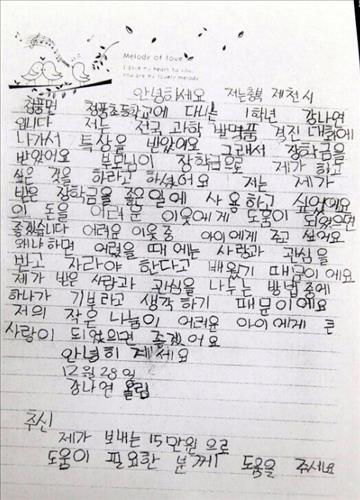 Melody of love
I gave my heart to you.
You are my lovely melody
안녕하세요 저는충북 제천시
청풍면 청풍초등학교에 다니는 1학년 강나연
입니다 저는 전국 과학 발명품 경진 대회에
나가서 특상을 받았어요 그래서 장학금을
받았어요 부모님이 장학금으로 제가 하고
싶은 것을 하라고 하셨어요 저는 제가
받은 장학금을 좋은 일에 사용하고 싶었어요
이 돈을 어려운 이웃에게 도움이 되었으면
좋겠습니다 어려운 이웃중 아이에게 주고 싶어요
왜냐하면 어렸을 때에는 사랑과 관심을
받고 자라야 한다고 배웠기 때문이에요
제가 받은 사랑과 관심을 나누는 방법 중에
하나가 기부라고 생각하기 때문이에요
저의 작은 나눔이 어려운 아이에게 큰
사랑이 되었으면 좋겠어요
안녕히 계세요
12월 28일
강나연 올림
추신
제가 보내는 15만원 으로
도움이 필요한 분께 도움을 주세요